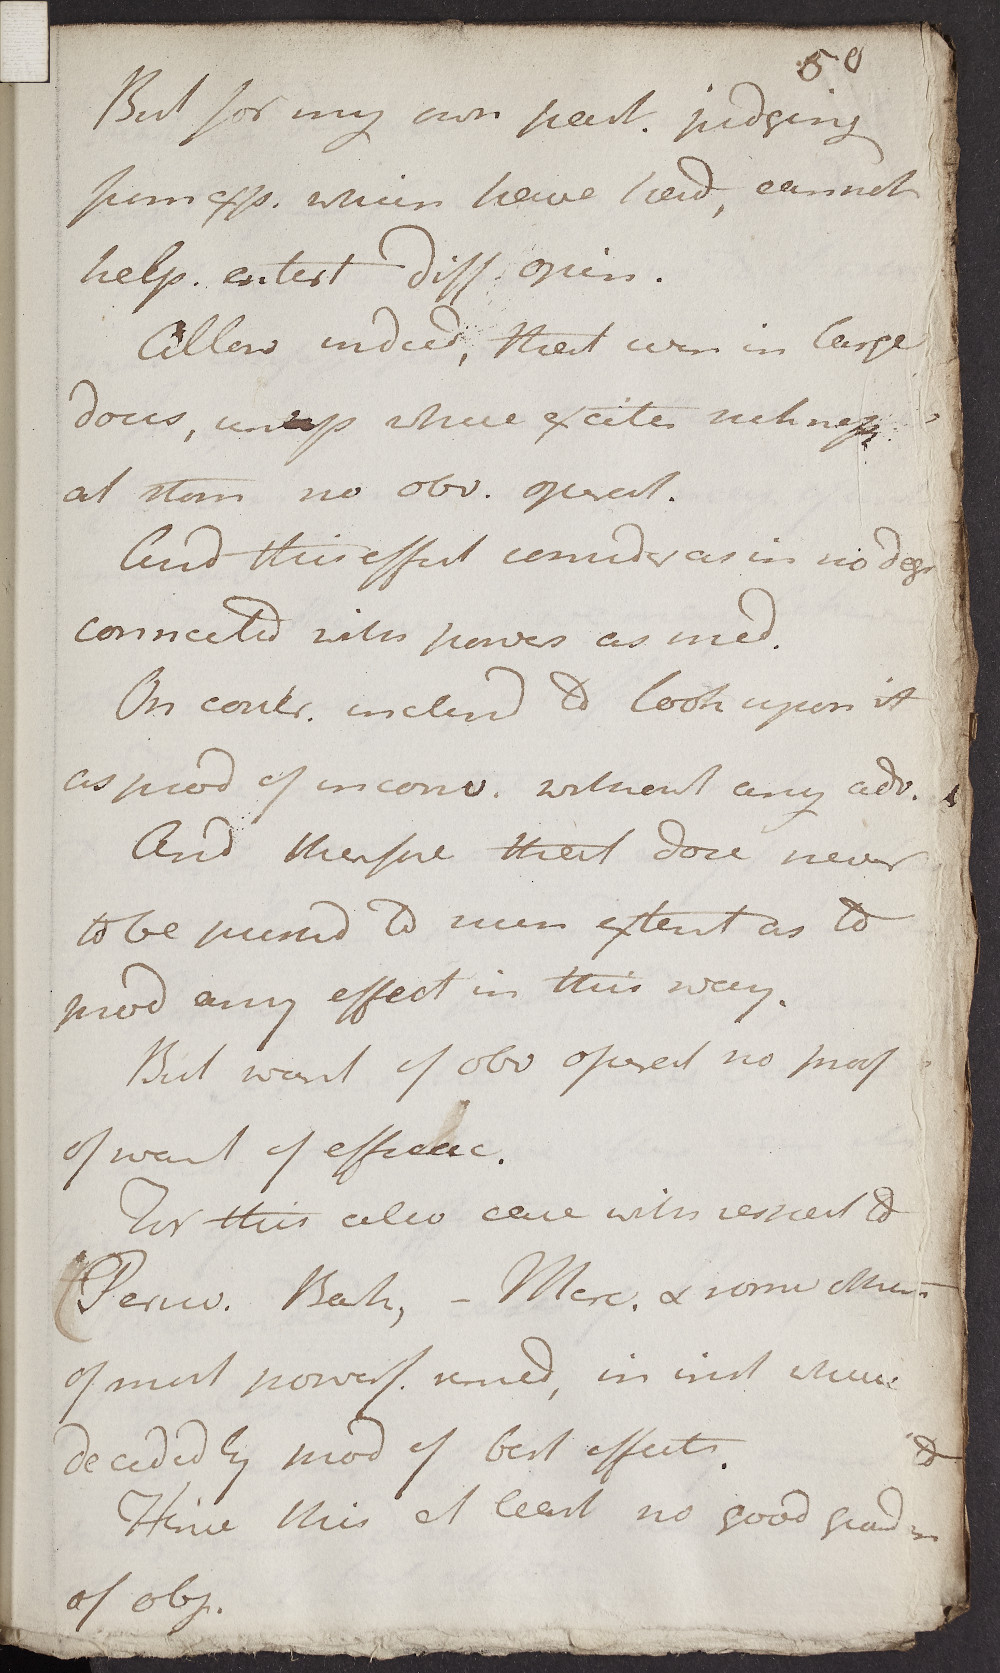 50
But for my own part. judging
from exp. which have had, cannot
help. entert diff. opin.
Allow indeed, that even in large
doses, unless where excites sickness
at stom no obv. operat.
And this effect consider as in no degr
connected with power as med.
On contr. inclind to look upon it
as prod of inconv. without any adv.
And therefore that dose never
to be pushd to such extent as to
prod any effect in this way.
But want of obv operat no proof
of want of efficac.
For this also case with respect to
Peruv. Bark, - Merc. & some others
of most powerf. remed, in inst where
decidedly prod of best effects.
Hence this at least no good ground
of obj.